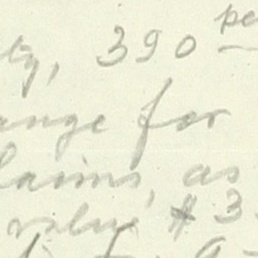 ty, 390 pe
ange for
laims, as
value $3